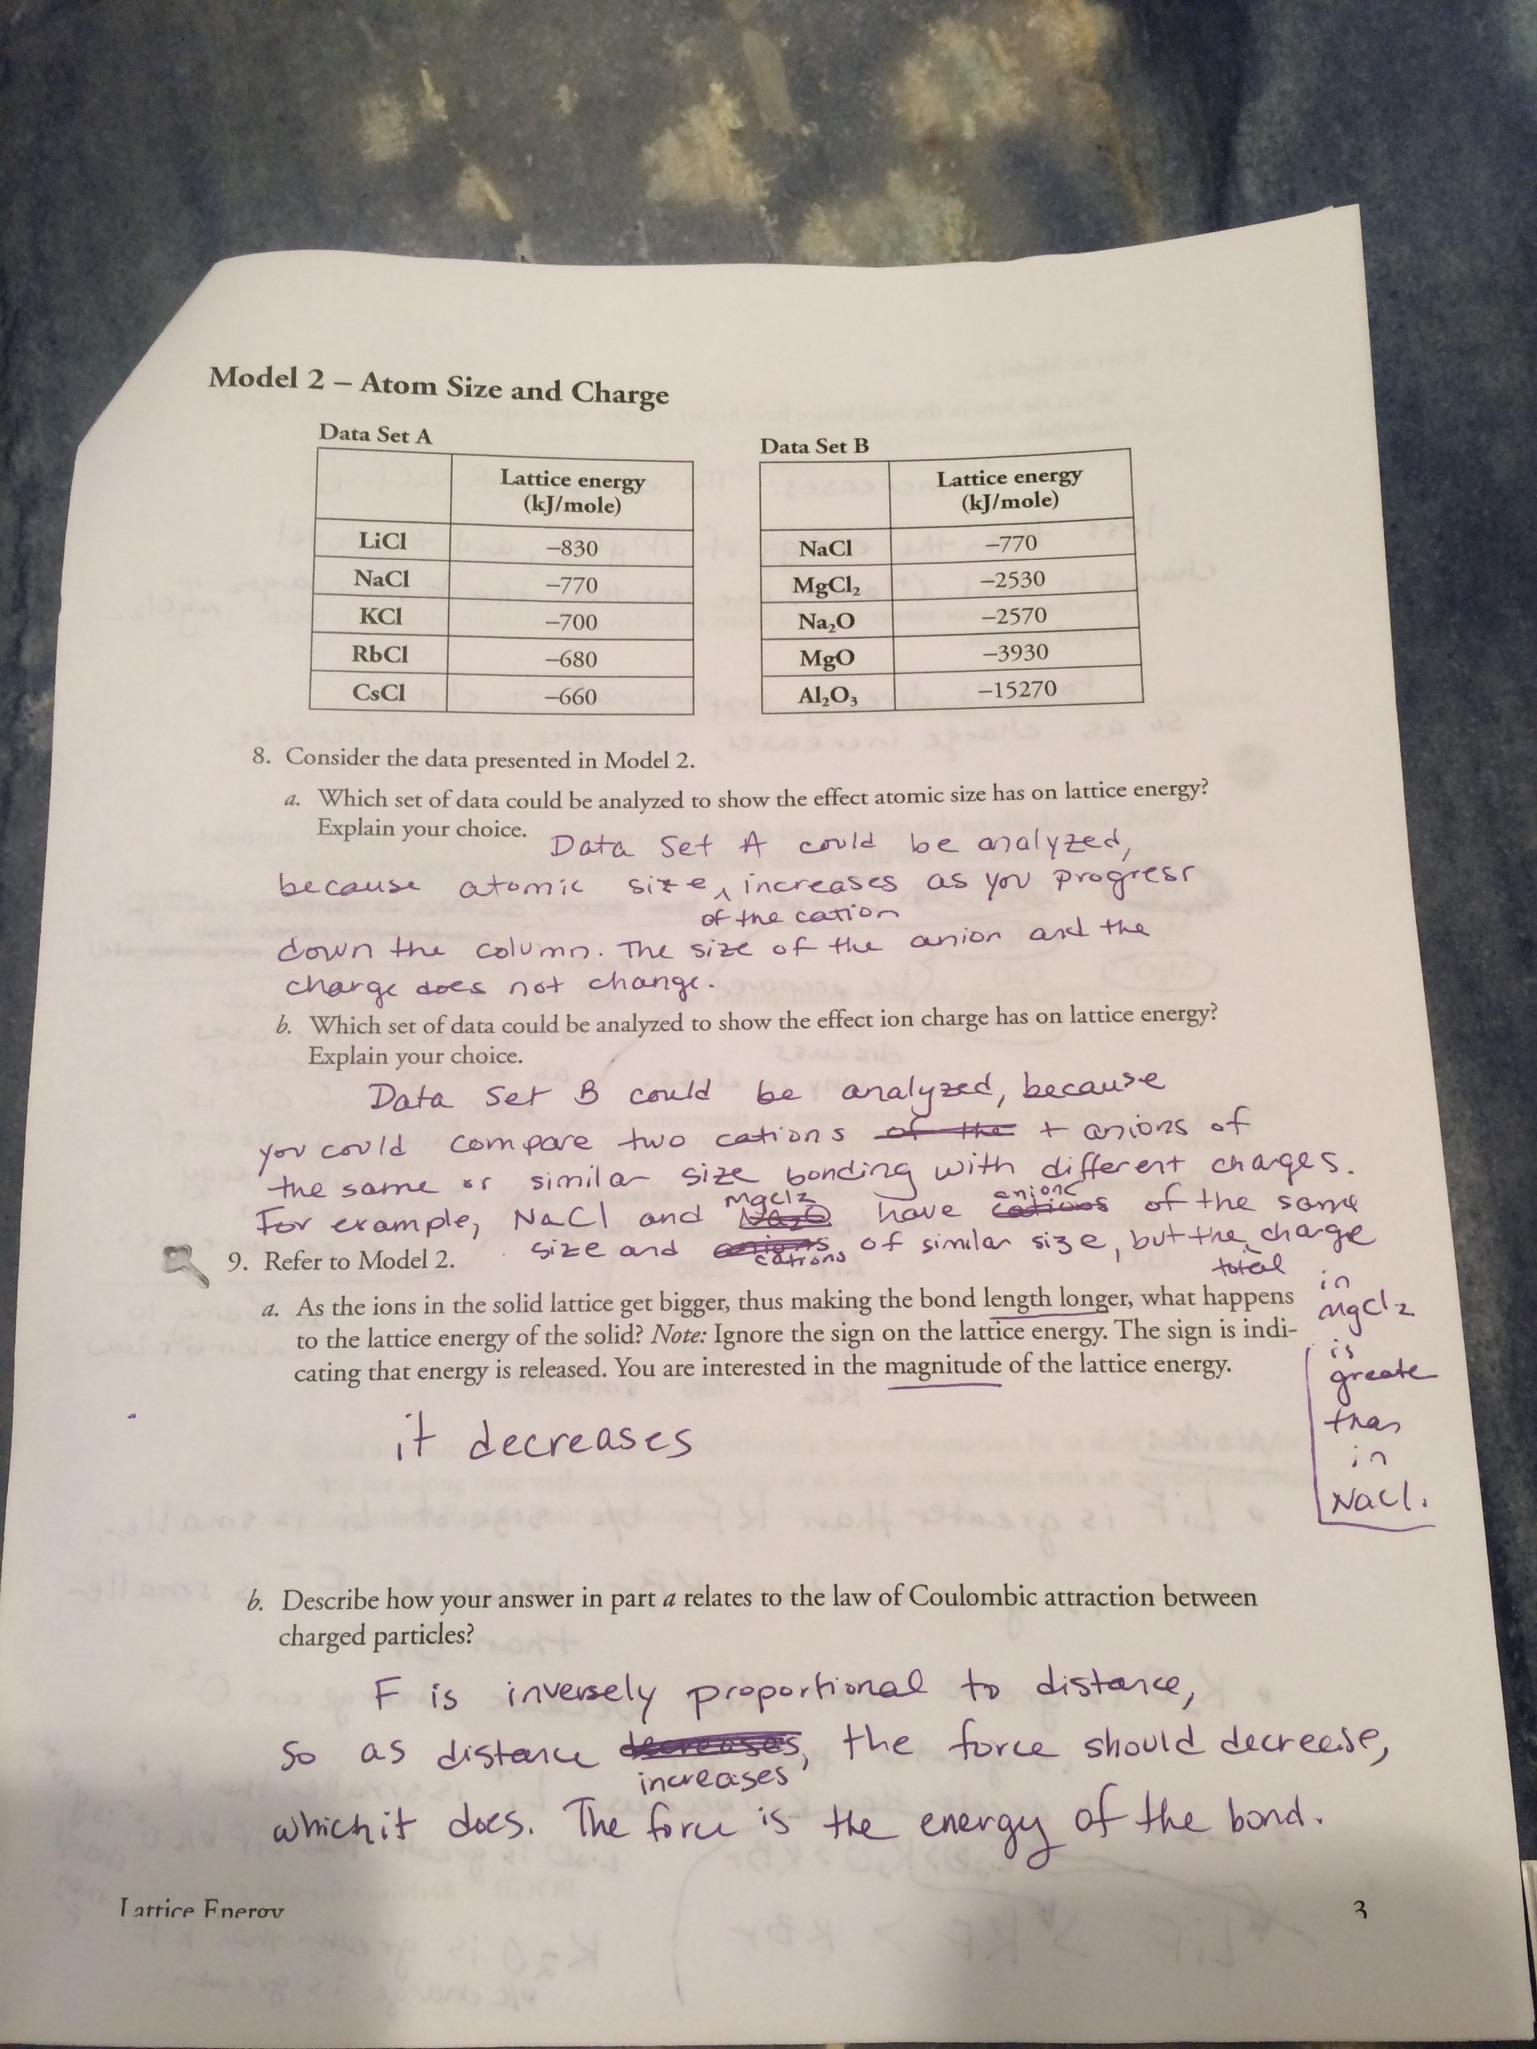 Model 2 – Atom Size and Charge
Data Set A
Lattice energy
(kJ/mole)
LiCl –830
NaCl –770
KCl –700
RbCl –680
CsCl –660
Data Set B
Lattice energy
(kJ/mole)
NaCl –770
MgCl₂ –2530
Na₂O –2570
MgO –3930
Al₂O₃ –15270
8. Consider the data presented in Model 2.
a. Which set of data could be analyzed to show the effect atomic size has on lattice energy?
Explain your choice.
Data Set A could be analyzed,
because atomic size ^ increases as you progress
of the cation
down the column. The size of the anion and the
charge does not change.
b. Which set of data could be analyzed to show the effect ion charge has on lattice energy?
Explain your choice.
Data Set B could be analyzed, because
you could compare two cations of the + anions of
the same or similar size bonding with different charges.
MgCl2 anions
For example, NaCl and Na2O have cations of the same
size and anions of similar size, but the charge
cations total
in
MgCl2
is
greate
than
in
NaCl.
9. Refer to Model 2.
a. As the ions in the solid lattice get bigger, thus making the bond length longer, what happens
to the lattice energy of the solid? Note: Ignore the sign on the lattice energy. The sign is indi-
cating that energy is released. You are interested in the magnitude of the lattice energy.
it decreases
b. Describe how your answer in part a relates to the law of Coulombic attraction between
charged particles?
F is inversely proportional to distance,
so as distance decreases, the force should decrease,
increases
which it does. The force is the energy of the bond.
Lattice Energy
3